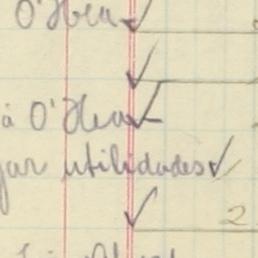 O'Hea
à O'Hea
gar utilidades
2